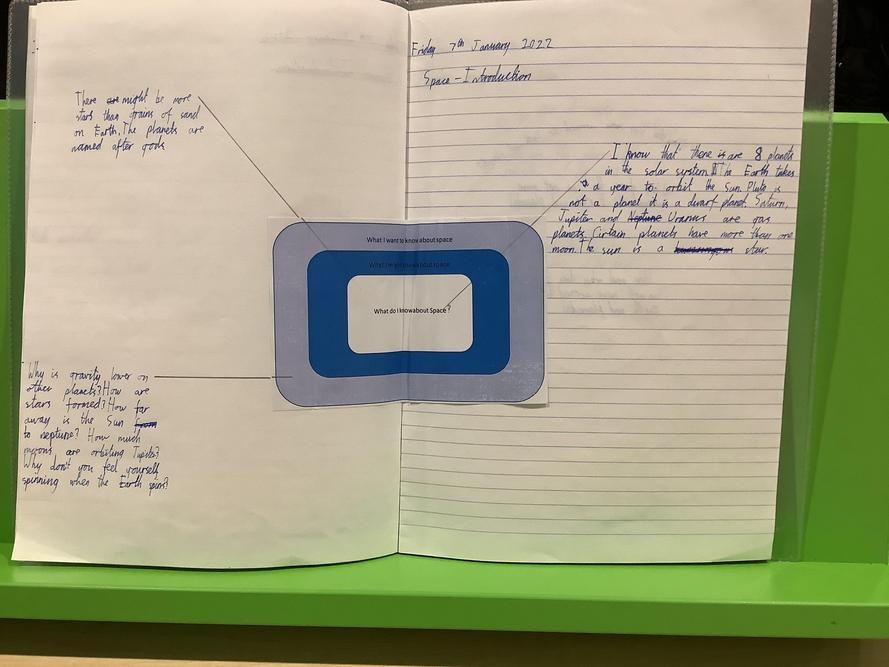 Friday 7th January 2022
Space - Introduction
There are might be more
stars than grains of sand
on Earth. The planets are
named after gods
I know that there is are 8 planets
in the solar system. The Earth takes
a year to orbit the Sun. Pluto is
not a planet it is a dwarf planet. Saturn,
Jupiter and Neptune Uranus are gas
planets. Cirtain planets have more than one
moon. The sun is a star.
What I want to know about space
What I might know about space
What do I know about Space?
Why is gravity lower on
other planets? How are
stars formed? How far
away is the Sun from
to neptune? How much
moons are orbiting Jupiter?
Why don't you feel yourself
spinning when the Earth spins?